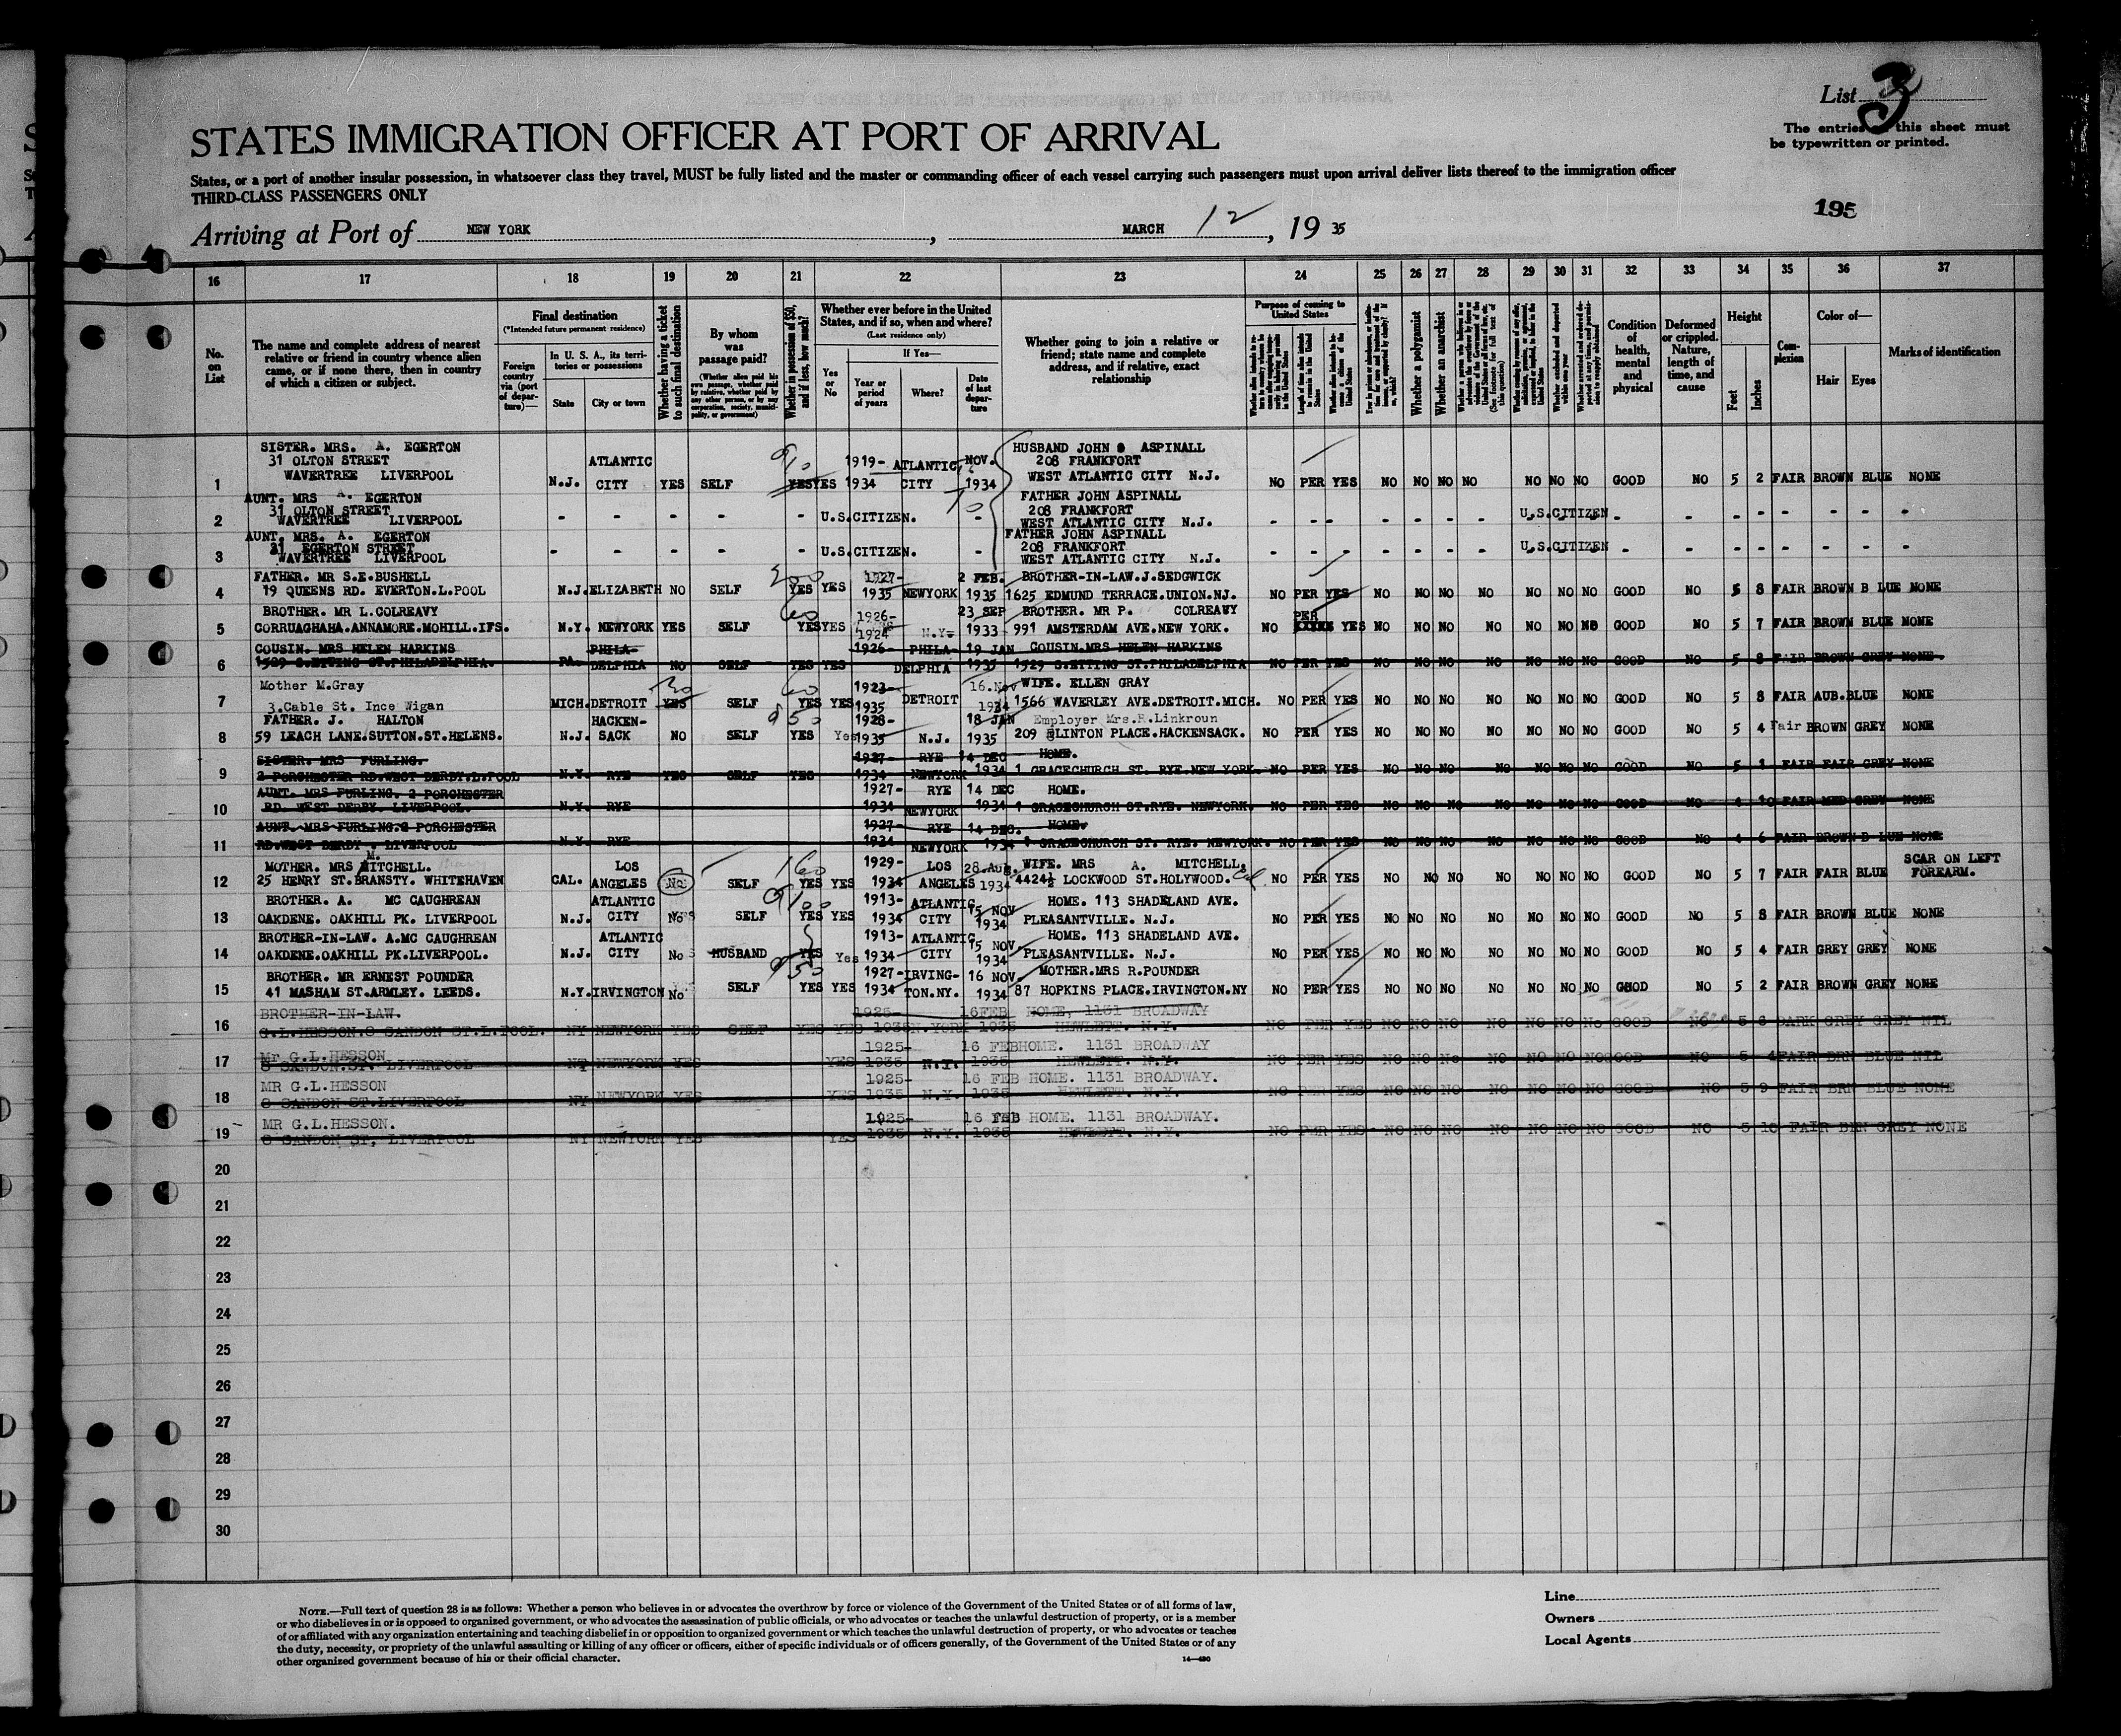 List 3
The entries this sheet must
be typewritten or printed.
STATES IMMIGRATION OFFICER AT PORT OF ARRIVAL
States, or a port of another insular possession, in whatsoever class they travel, MUST be fully listed and the master or commanding officer of each vessel carrying such passengers must upon arrival deliver lists thereof to the immigration officer
THIRD-CLASS PASSENGERS ONLY
195
Arriving at Port of NEW YORK, MARCH 12, 19 35
16 17 18 19 20 21 22 23 24 25 26 27 28 29 30 31 32 33 34 35 36 37
No. on List
The name and complete address of nearest relative or friend in country whence alien came, or if none there, then in country of which a citizen or subject.
Final destination
(*Intended future permanent residence)
Foreign country via (port of departure)—
In U. S. A., its territories or possessions
State
City or town
Whether having a ticket to such final destination
By whom was passage paid?
(Whether alien paid his own passage, whether paid by relative, whether paid by any other person, or by any corporation, society, municipality, or government)
Whether in possession of $50, and if less, how much?
Whether ever before in the United States, and if so, when and where?
(Last residence only)
Yes or No
If Yes—
Year or period of years
Where?
Date of last departure
Whether going to join a relative or friend; state name and complete address, and if relative, exact relationship
Purpose of coming to United States
Length of time alien intends to remain in the United States
Whether alien intends to become a citizen of the United States
Whether a polygamist
Whether an anarchist
Condition of health, mental and physical
Deformed or crippled. Nature, length of time, and cause
Height
Feet
Inches
Complexion
Color of—
Hair
Eyes
Marks of identification
SISTER. MRS. A. EGERTON HUSBAND JOHN ASPINALL
31 OLTON STREET ATLANTIC 1919- ATLANTIC NOV. 208 FRANKFORT
WAVERTREE LIVERPOOL WEST ATLANTIC CITY N.J.
1 N.J. CITY YES SELF YES YES 1934 CITY 1934 NO PER YES NO NO NO NO NO NO NO GOOD NO 5 2 FAIR BROWN BLUE NONE
AUNT. MRS A. EGERTON FATHER JOHN ASPINALL
31 OLTON STREET 208 FRANKFORT
2 WAVERTREE LIVERPOOL - - - - - U.S.CITIZEN. - WEST ATLANTIC CITY N.J. - - - - - - - U.S.CITIZEN - - - - - - - -
AUNT. MRS. A. EGERTON FATHER JOHN ASPINALL
31 EGERTON STREET 208 FRANKFORT
3 WAVERTREE LIVERPOOL - - - - - U.S.CITIZEN. - WEST ATLANTIC CITY N.J. - - - - - - - U.S.CITIZEN - - - - - - - -
FATHER. MR S.E.BUSHELL 200 1927- 2 FEB. BROTHER-IN-LAW.J.SEDGWICK
4 19 QUEENS RD. EVERTON.L.POOL N.J. ELIZABETH NO SELF YES YES 1935 NEWYORK 1935 1625 EDMUND TERRACE.UNION.NJ. NO PER YES NO NO NO NO NO NO NO GOOD NO 5 8 FAIR BROWN B LUE NONE
BROTHER. MR L.COLREAVY 60 1926- 23 SEP BROTHER. MR P. COLREAVY PER
5 CORRUAGHAHA.ANNAMORE.MOHILL.IFS. N.Y. NEWYORK YES SELF YES YES 1924 N.Y- 1933 991 AMSTERDAM AVE.NEW YORK. NO XXXXX YES NO NO NO NO NO NO NO GOOD NO 5 7 FAIR BROWN BLUE NONE
COUSIN. MRS HELEN HARKINS PHILA- 1926- PHILA- 19 JAN COUSIN.MRS HELEN HARKINS
6 1529 S.ETTING ST.PHILADELPHIA. PA. DELPHIA NO SELF YES YES DELPHIA 1935 1529 S.ETTING ST.PHILADELPHIA NO PER YES NO NO NO NO NO NO NO GOOD NO 5 8 FAIR BROWN GREY NONE.
Mother M.Gray 60 1923- 16.Nov WIFE. ELLEN GRAY
7 3.Cable St. Ince Wigan MICH. DETROIT YES SELF YES YES 1935 DETROIT 1934 1566 WAVERLEY AVE.DETROIT.MICH. NO PER YES NO NO NO NO NO NO NO GOOD NO 5 8 FAIR AUB.BLUE NONE
FATHER. J. HALTON HACKEN- 1928- 18 JAN Employer Mrs.R.Linkroun
8 59 LEACH LANE.SUTTON.ST.HELENS. N.J. SACK NO SELF YES Yes 1935 N.J. 1935 209 CLINTON PLACE.HACKENSACK. NO PER YES NO NO NO NO NO NO NO GOOD NO 5 4 Fair BROWN GREY NONE
SISTER. MRS FURLING. 1927- RYE 14 DEC HOME.
9 2 PORCHESTER RD.WEST DERBY.L.POOL N.Y. RYE YES SELF YES 1934 NEWYORK 1934 1 GRACECHURCH ST. RYE.NEW YORK. NO PER YES NO NO NO NO NO NO NO GOOD NO 5 1 FAIR FAIR GREY NONE
AUNT. MRS FURLING. 2 PORCHESTER 1927- RYE 14 DEC HOME.
10 RD. WEST DERBY. LIVERPOOL. N.Y. RYE 1934 NEWYORK 1934 1 GRACECHURCH ST.RYE. NEWYORK. NO PER YES NO NO NO NO NO NO NO GOOD NO 4 10 FAIR MED GREY NONE
AUNT. MRS FURLING.2 PORCHESTER 1927- RYE 14 DEC. HOME.
11 RD.WEST DERBY. LIVERPOOL N.Y. RYE 1934 NEWYORK 1934 1 GRACECHURCH ST. RYE. NEWYORK. NO PER YES NO NO NO NO NO NO NO GOOD NO 4 6 FAIR BROWN B LUE NONE
MOTHER. MRS MITCHELL. LOS 160 1929- LOS 28.Aug. WIFE. MRS A. MITCHELL. SCAR ON LEFT
12 25 HENRY ST.BRANSTY. WHITEHAVEN CAL. ANGELES No SELF YES YES 1934 ANGELES 1934 4424½ LOCKWOOD ST.HOLYWOOD. Cal. NO PER YES NO NO NO NO NO NO NO GOOD NO 5 7 FAIR FAIR BLUE FOREARM.
BROTHER. A. MC CAUGHREAN ATLANTIC 100 1913- ATLANTIC 15 NOV HOME. 113 SHADELAND AVE.
13 OAKDENE. OAKHILL PK. LIVERPOOL N.J. CITY No SELF YES YES 1934 CITY 1934 PLEASANTVILLE. N.J. NO PER YES NO NO NO NO NO NO NO GOOD NO 5 8 FAIR BROWN BLUE NONE
BROTHER-IN-LAW. A.MC CAUGHREAN ATLANTIC 1913- ATLANTIC 15 NOV HOME. 113 SHADELAND AVE.
14 OAKDENE.OAKHILL PK.LIVERPOOL. N.J. CITY No HUSBAND YES Yes 1934 CITY 1934 PLEASANTVILLE. N.J. NO PER YES NO NO NO NO NO NO NO GOOD NO 5 4 FAIR GREY GREY NONE
BROTHER. MR ERNEST POUNDER 1927- IRVING- 16 NOV MOTHER.MRS R.POUNDER
15 41 MASHAM ST.ARMLEY. LEEDS. N.Y. IRVINGTON No SELF YES YES 1934 TON.NY. 1934 87 HOPKINS PLACE.IRVINGTON.NY NO PER YES NO NO NO NO NO NO NO GOOD NO 5 2 FAIR BROWN GREY NONE
BROTHER-IN-LAW. 1925- 16FEB HOME, 1131 BROADWAY
16 G.L.HESSON.8 SANDON ST.L.POOL. NY NEWYORK YES SELF YES YES 1935 N.YORK 1935 HEWLETT. N.Y. NO PER YES NO NO NO NO NO NO No GOOD NO 5 6 DARK GREY GREY NIL
Mr G.L.HESSON 1925- 16 FEB HOME. 1131 BROADWAY
17 8 SANDON.ST. LIVERPOOL NY NEWYORK YES YES 1935 N.Y. 1935 HEWLETT. N.Y. NO PER YES NO NO No NO NO NO NO GOOD NO 5 4 FAIR BRN BLUE NIL
MR G.L.HESSON 1925- 16 FEB HOME. 1131 BROADWAY.
18 8 SANDON ST.LIVERPOOL NY NEWYORK YES YES 1935 N.Y. 1935 HEWLETT. N.Y. NO PER YES NO NO NO NO NO NO NO GOOD NO 5 9 FAIR BRN BLUE NONE
MR G.L.HESSON. 1925- 16 FEB HOME. 1131 BROADWAY.
19 8 SANDON ST, LIVERPOOL NY NEWYORK YES YES 1935 N.Y. 1935 HEWLETT. N.Y. NO PER YES NO NO NO NO NO NO NO GOOD NO 5 10 FAIR BRN GREY NONE
20
21
22
23
24
25
26
27
28
29
30
NOTE.—Full text of question 28 is as follows: Whether a person who believes in or advocates the overthrow by force or violence of the Government of the United States or of all forms of law,
or who disbelieves in or is opposed to organized government, or who advocates the assassination of public officials, or who advocates or teaches the unlawful destruction of property, or is a member
of or affiliated with any organization entertaining and teaching disbelief in or opposition to organized government or which teaches the unlawful destruction of property, or who advocates or teaches
the duty, necessity, or propriety of the unlawful assaulting or killing of any officer or officers, either of specific individuals or of officers generally, of the Government of the United States or of any
other organized government because of his or their official character.
14—430
Line
Owners
Local Agents